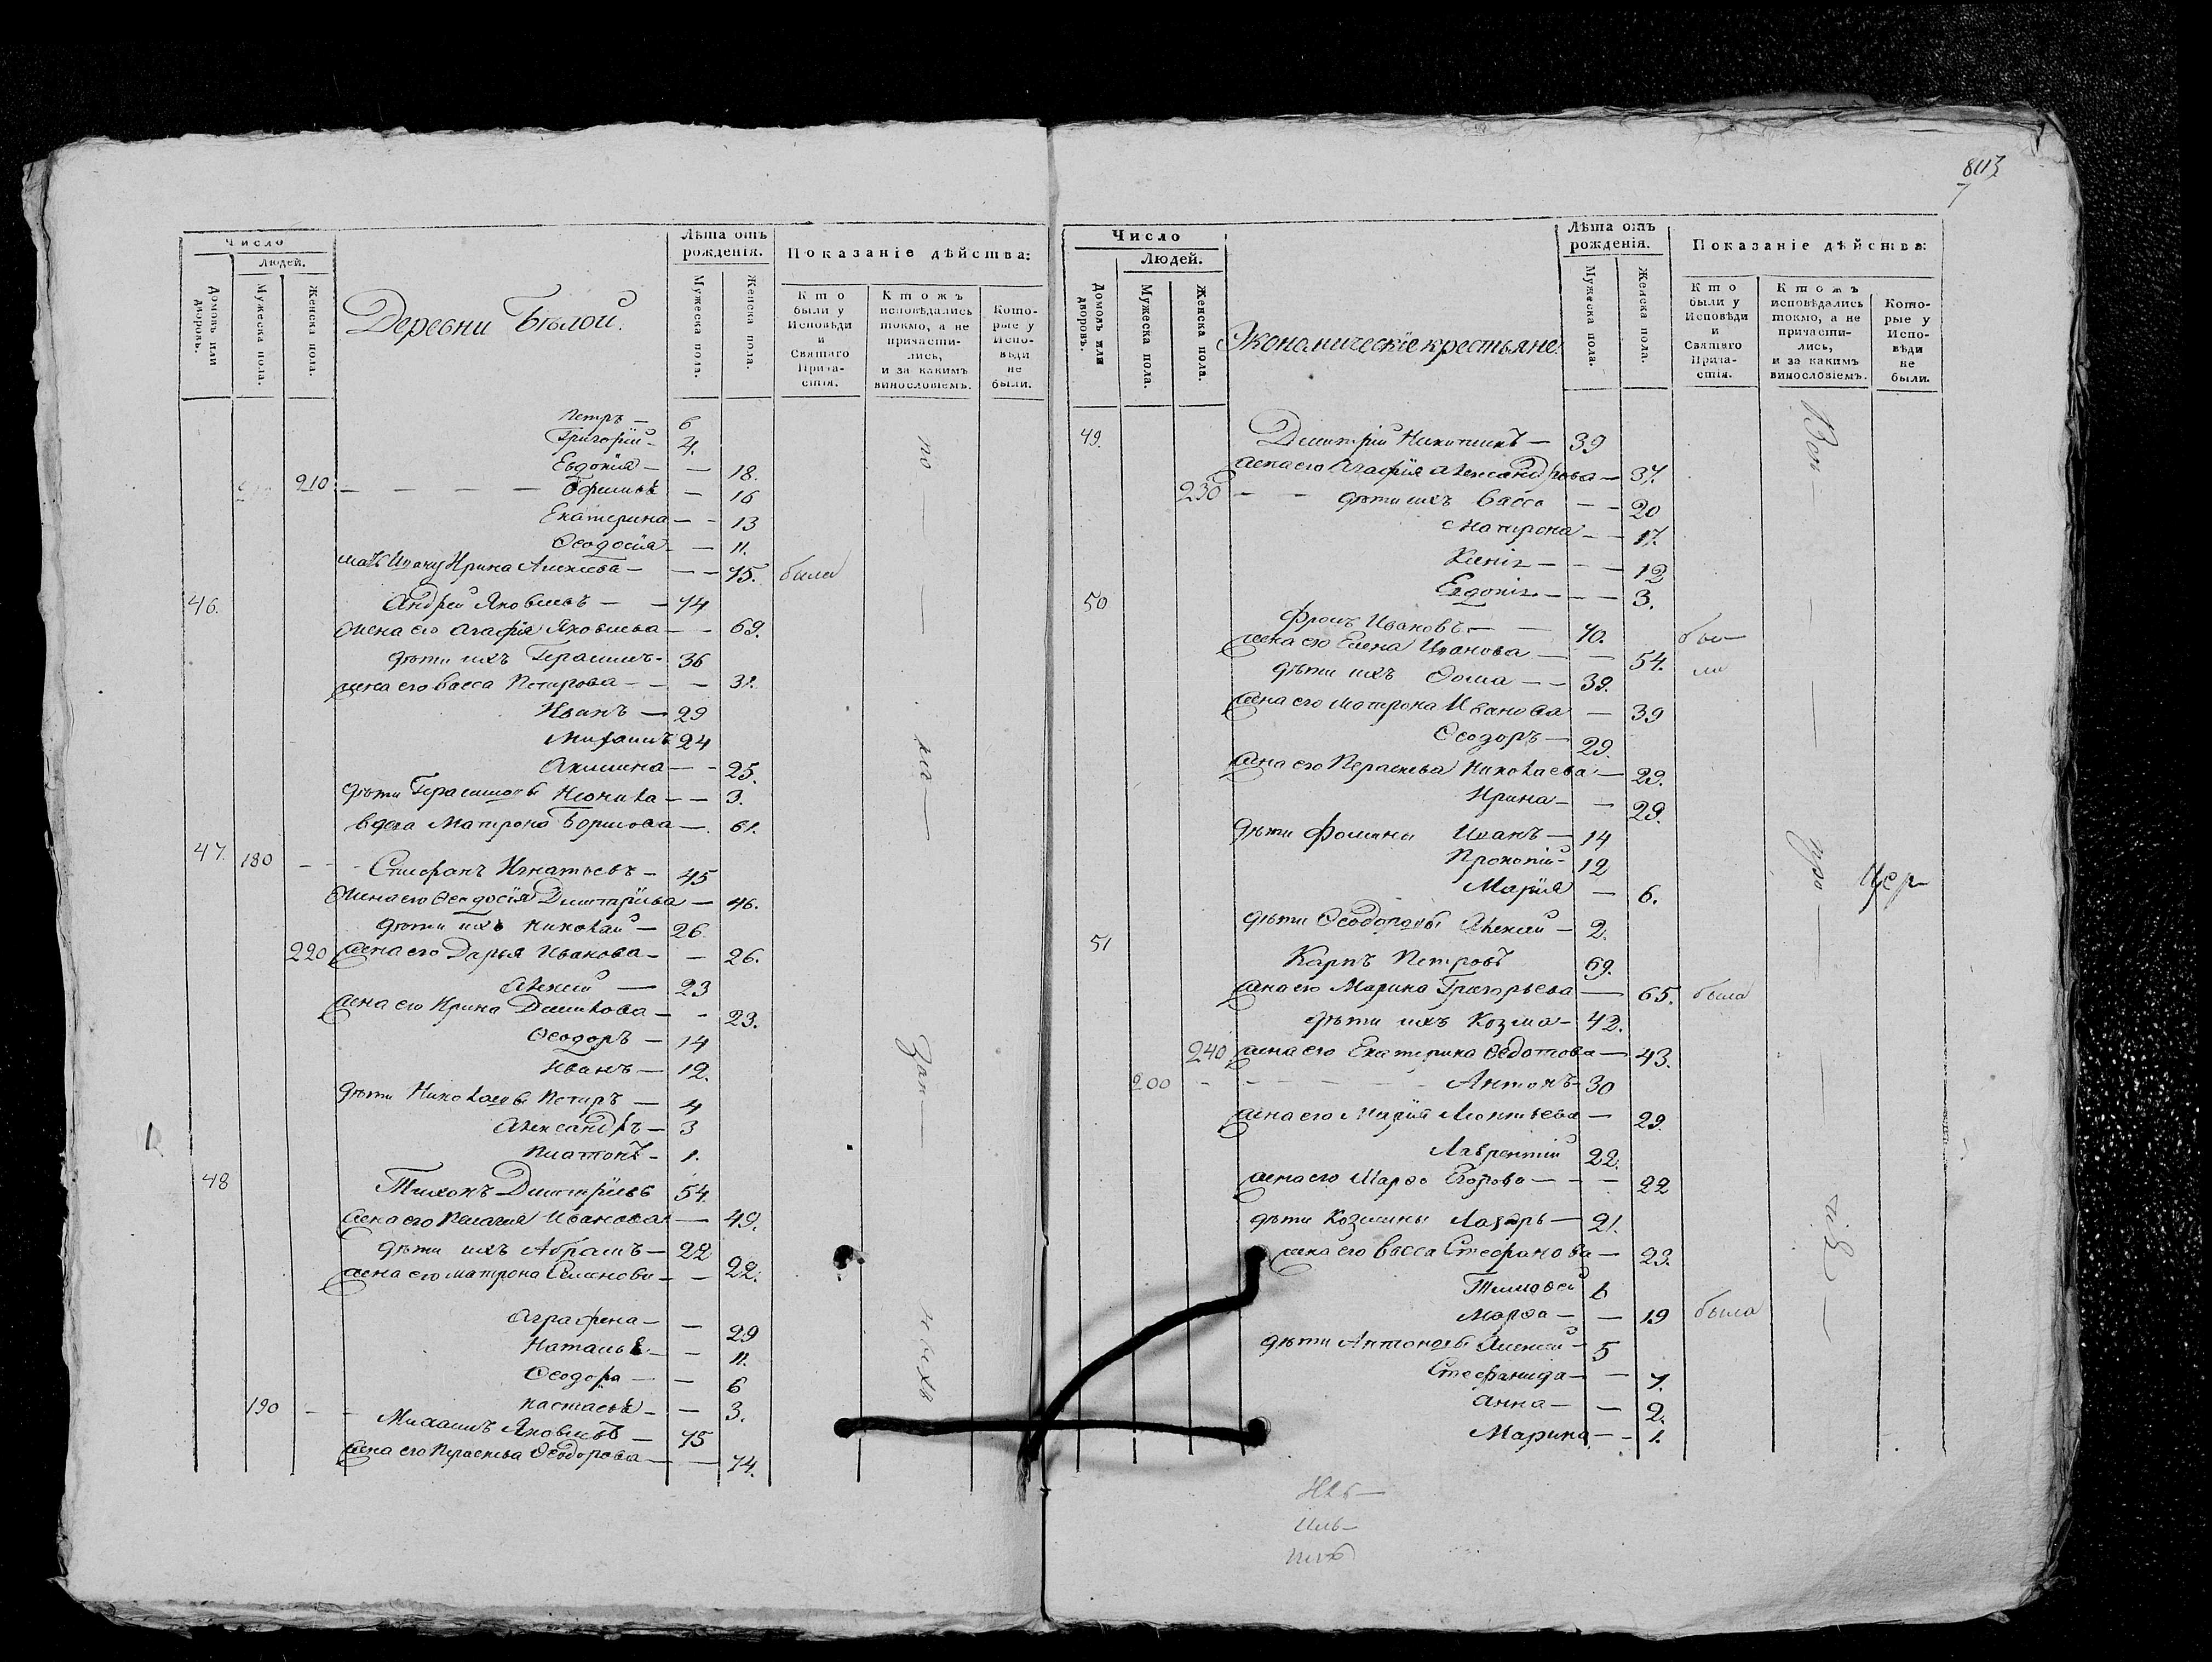 8113
Число
Людей.
Домовъ или дворовъ.
Мужеска пола.
Женска пола.
Деревни Бѣлой.
Лѣта отъ рожденія.
Мужеска пола.
Женска пола.
Показаніе дѣйства:
Кто были у Исповѣди и Святаго Прича-стія.
Ктожъ исповѣдались токмо, а не причасти-лись, и за какимъ винословіемъ.
Кото-рые у Испо-вѣди не были.
Петръ — 6
Григорій — 4.
Евдокія — — 18.
210 — — — — — 16
Екатерина — — 13
Ѳеодосія — — 11.
мать Ивану Ирина Алексѣева — — — 75. была
46. Андрей Яковлевъ — — 74
Жена его Агафія Яковлева — — 69.
дѣти ихъ Герасимъ - 36
жена его Васса Петрова — — — 31.
Иванъ — 29
Михаилъ 24
Акилина — — 25.
дѣти Герасимовы Неонила — — 3.
вдова Матрона Борисова — 61.
47. 180 — — Стефанъ Игнатьевъ — 45
Жена его Ѳеодосія Димитріева — 46.
дѣти ихъ Николай — 26
220 жена его Дарья Иванова — — 26.
Алексѣй — 23
жена его Ирина Данилова — — 23.
Ѳеодоръ — 14
Иванъ — 12.
дѣти Николаевы Петръ — 4
Александръ — 3
Платонъ — 1.
48 Тихонъ Димитріевъ 54.
жена его Пелагія Иванова — 49.
дѣти ихъ Абрамъ — 22
жена его Матрона Семенова — — 22.
Аграфена — — 29
Наталья — — 11.
Ѳеодора — — 6
190 — — Настасья — — 3.
Михаилъ Яковлевъ — 75
жена его Параскева Ѳеодорова — — 74.
Число
Людей.
Домовъ или дворовъ.
Мужеска пола.
Женска пола.
Экономическіе крестьяне.
Лѣта отъ рожденія.
Мужеска пола.
Женска пола.
Показаніе дѣйства:
Кто были у Исповѣди и Святаго Прича-стія.
Ктожъ исповѣдались токмо, а не причасти-лись, и за какимъ винословіемъ.
Кото-рые у Испо-вѣди не были.
49. Димитрій Никитинъ — 39
жена его Агафія Александрова — 37.
230 — — дѣти ихъ Васса — — 20
Матрона — — 17.
Ксенія — — — 12
Евдокія — — — 3.
50 Фролъ Ивановъ — — 70. бы—
жена его Елена Иванова — — 54. ли
дѣти ихъ Ѳома — — 39.
жена его Матрона Иванова — 39
Ѳеодоръ — 29.
жена его Параскева Николаева — 29.
Ирина — — 29.
дѣти Фомины Иванъ — 14
Прокопій — 12
Марія — 6.
дѣти Ѳеодоровы Алексѣй — 2.
51 Карпъ Петровъ 69.
жена его Марина Григорьева — 65. была
дѣти ихъ Козма — 42.
240 жена его Екатерина Ѳедотова — 43.
200 — — — — — — Антонъ — 30
жена его Марія Леонтьева — 29.
Лаврентій 22.
жена его Марѳа Егорова — — — 22
дѣти Козмины Лазарь — 21.
жена его Васса Стефанова — 23.
Тимоѳей 6
Марѳа — — 19 была
дѣти Антоновы Алексѣй — 5
Стефанида — — 7.
Анна — — 2.
Марина — — 1.